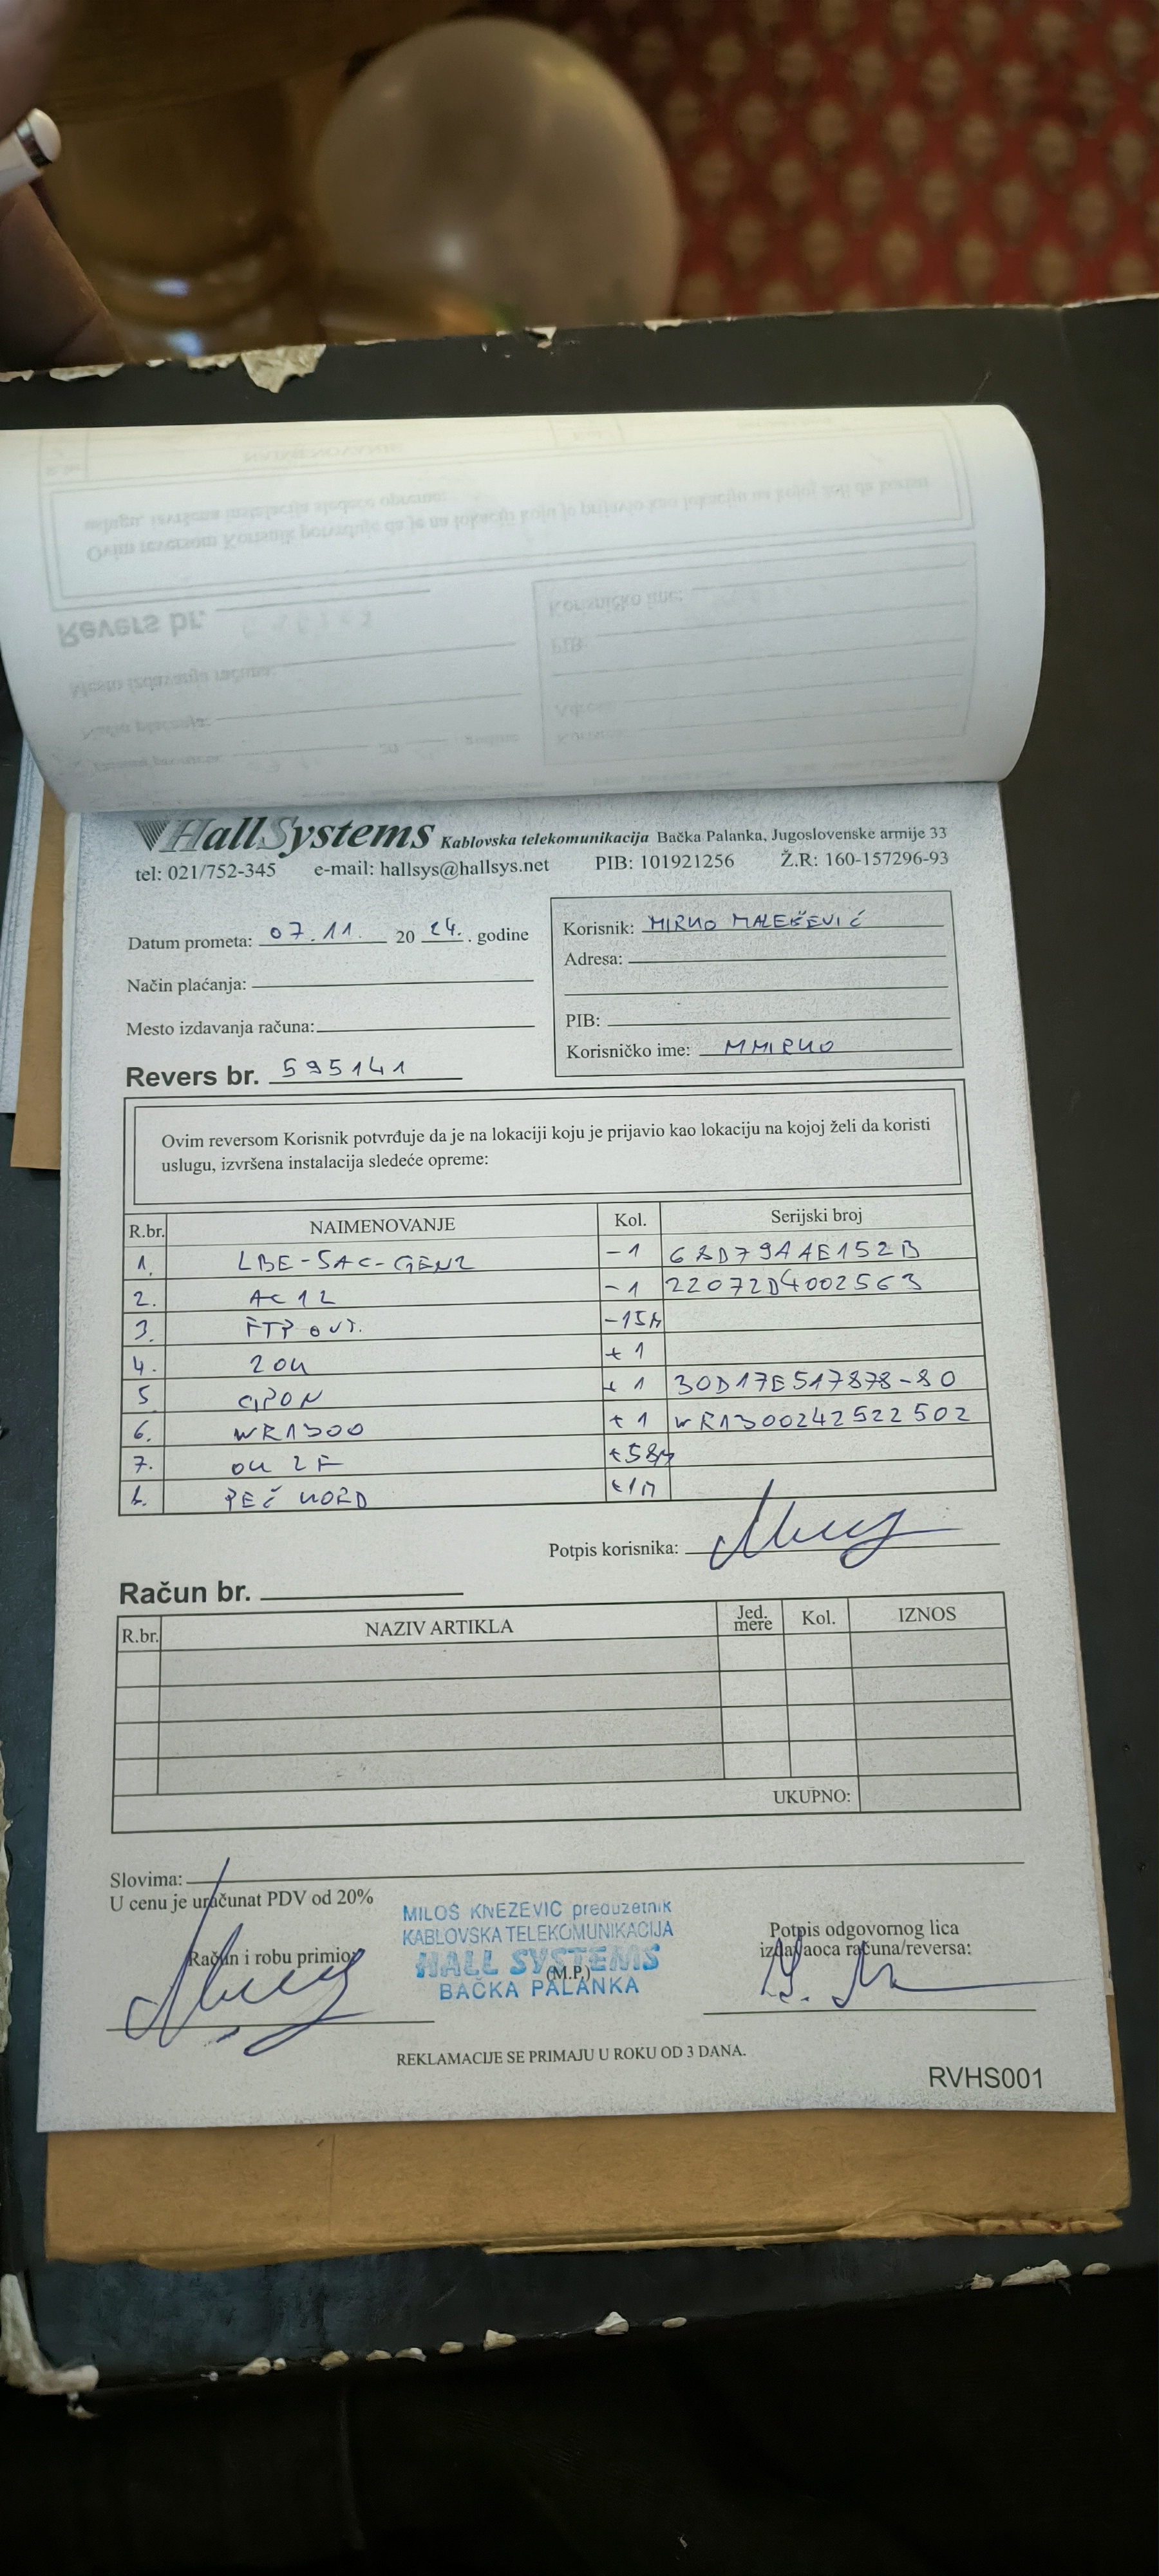 HallSystems Kablovska telekomunikacija Bačka Palanka, Jugoslovenske armije 33
tel: 021/752-345 e-mail: hallsys@hallsys.net PIB: 101921256 Ž.R: 160-157296-93
Datum prometa: 07.11. 20 24. . godine
Način plaćanja:
Mesto izdavanja računa:
Revers br. 595141
Korisnik: MIRKO MALEŠEVIĆ
Adresa:
PIB:
Korisničko ime: MMIRKO
Ovim reversom Korisnik potvrđuje da je na lokaciji koju je prijavio kao lokaciju na kojoj želi da koristi
uslugu, izvršena instalacija sledeće opreme:
R.br. NAIMENOVANJE Kol. Serijski broj
1. LBE-5AC-GEN2 -1 68D79AAE152B
2. AC12 -1 22072D4002563
3. FTP OUT. -15M
4. ZOK +1
5 GPON +1 30D17E517878-80
6. WR1300 +1 WR1300242522502
7. OK 2F +58M
8. PEČ KORD +1M
Potpis korisnika:
Račun br.
R.br. NAZIV ARTIKLA Jed. mere Kol. IZNOS
UKUPNO:
Slovima:
U cenu je uračunat PDV od 20%
Račun i robu primio
MILOŠ KNEZEVIC preduzetnik
KABLOVSKA TELEKOMUNIKACIJA
HALL SYSTEMS
(M.P.)
BAČKA PALANKA
Potpis odgovornog lica
izdavaoca računa/reversa:
REKLAMACIJE SE PRIMAJU U ROKU OD 3 DANA.
RVHS001